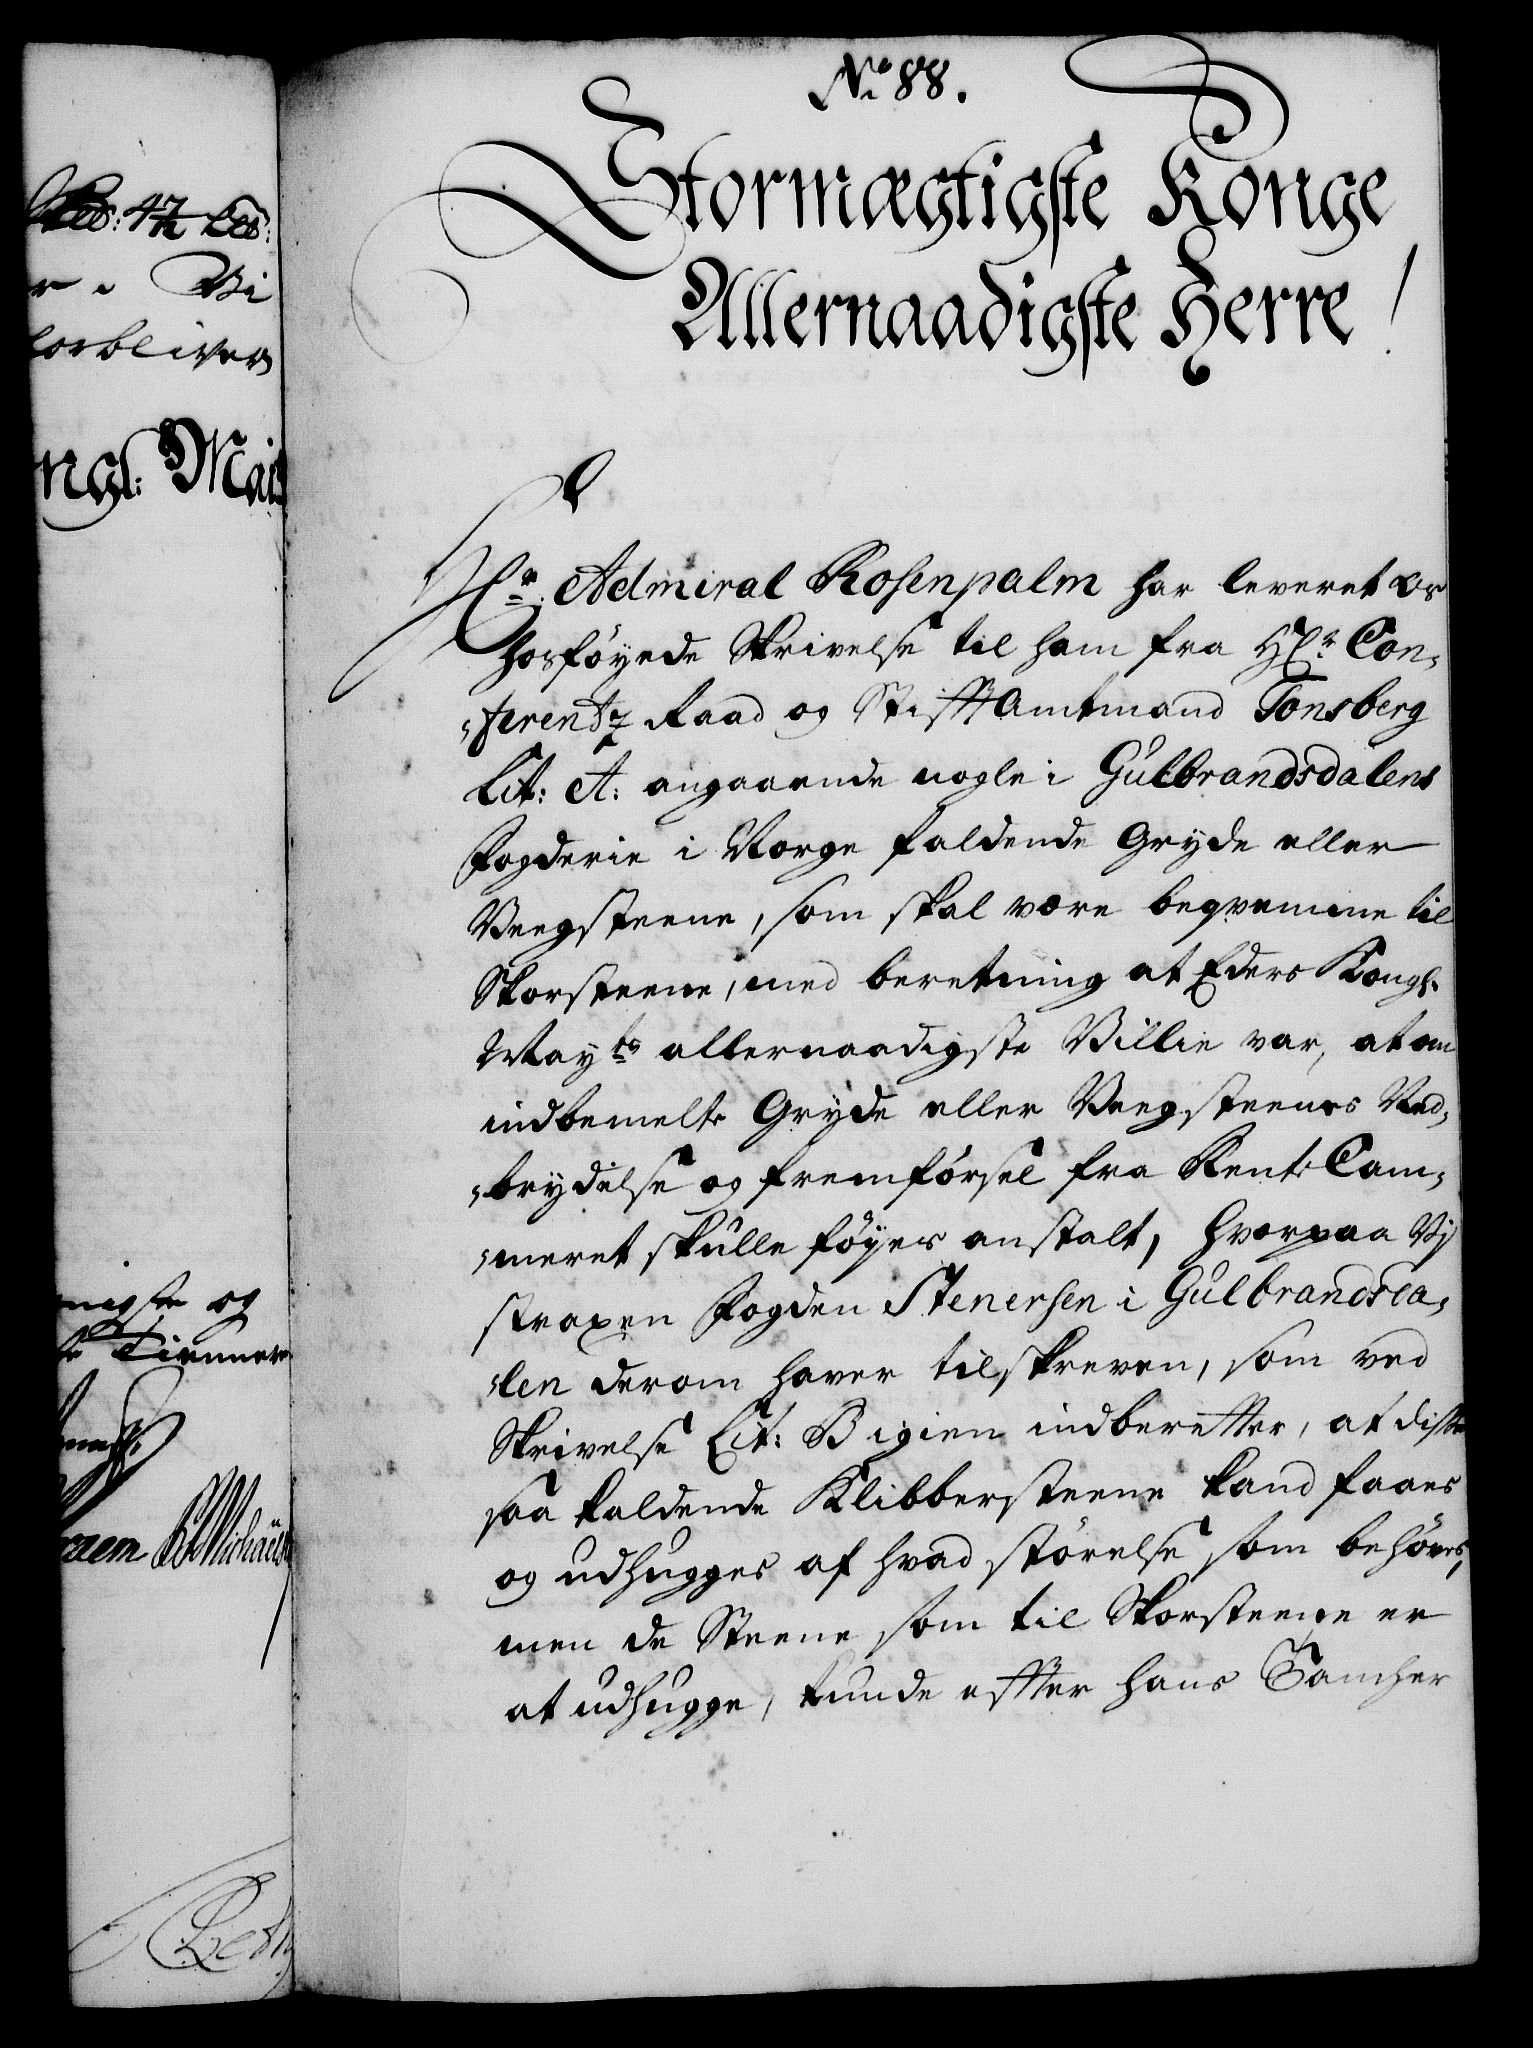 No 88.
Stormægtigste Konge
Allernaadigste Herre!
Hr. Admiral Rosenpalm har leveret os
hosföyede Skrivelse til ham fra Hr. Con-
-ferentz Raad og Stifftamtmand Tonsberg
Lit: A: angaaende nogle i Gulbrandsdalens
Fogderie i Norge faldende Gryde eller
Veegsteene, som skal være beqvemme til
Skorsteene, med beretning at Eders Kongl.
Mayts allernaadigste Villie var, at om
indbemelte Gryde eller Veegsteenes Ned-
-brydelse og fremförsel fra Rente Cam-
-meret skulle föyes anstalt, hvorpaa Vj
straxen Fogden Stenersen i Gulbrandsda-
-len derom haver tilskreven, som ved
Skrivelse Lit: B igien indberetter, at disse
saa kaldende Klibbersteene kand faaes
og udhugges af hvad störelse som behöves,
men de Steene som til Skorsteene er
at udhugge, kunde effter hans Tancker
Res: 47 Res:
r i Vi
forbliver
ngl: Mais
nigste og
Tienner